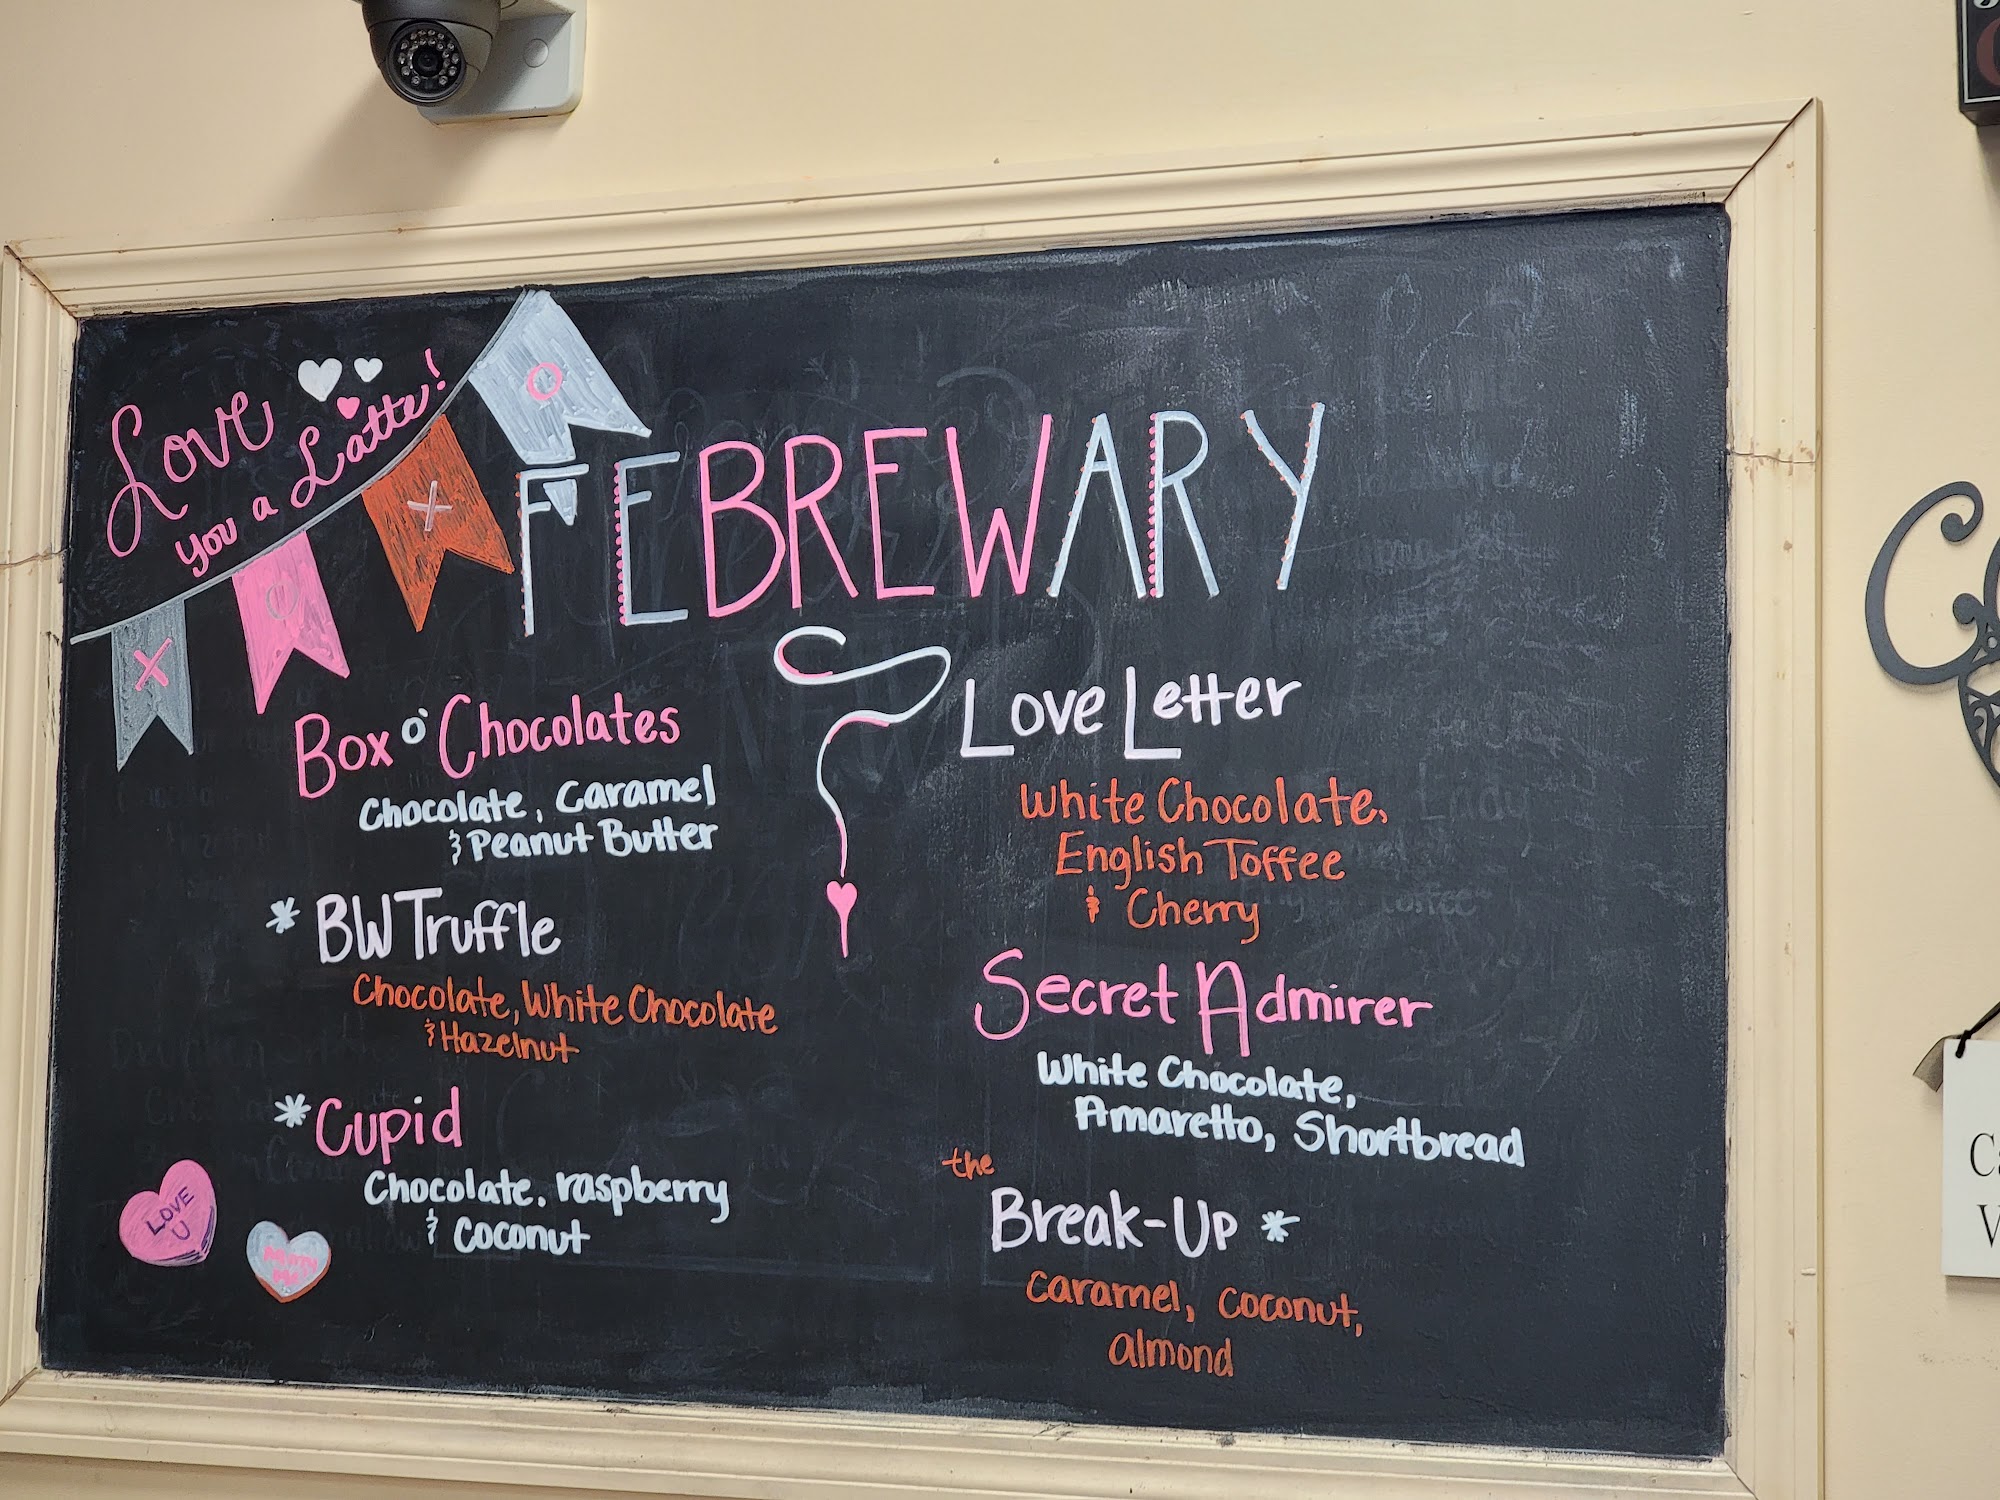 Love
you a Latte!
X O X O
FEBREWARY
Box o' Chocolates
Chocolate, Caramel
& Peanut Butter
* BW Truffle
Chocolate, White Chocolate
& Hazelnut
* Cupid
Chocolate, raspberry
& Coconut
LOVE
U
Marry
Me
Love Letter
White Chocolate,
English Toffee
& Cherry
Secret Admirer
White Chocolate,
Amaretto, Shortbread
the
Break-Up *
Caramel, Coconut,
almond